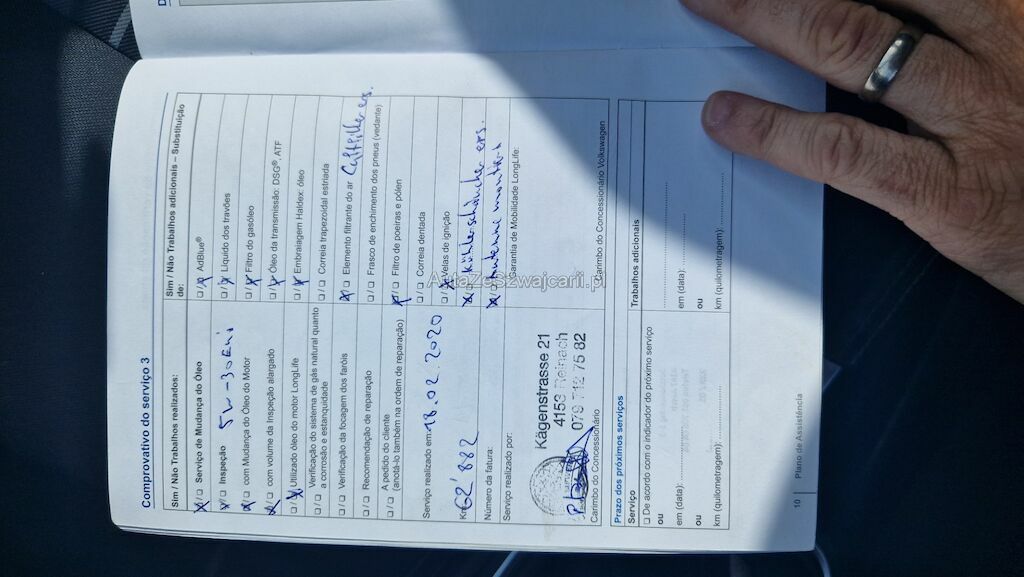 Comprovativo do serviço 3
Sim / Não Trabalhos realizados:
Serviço de Mudança do Óleo
Inspeção 5W-30
com Mudança do Óleo do Motor
com volume da Inspeção alargado
Utilizado óleo do motor LongLife
Verificação do sistema de gás natural quanto
a corrosão e estanquidade
Verificação da focagem dos faróis
Recomendação de reparação
A pedido do cliente
(anotá-lo também na ordem de reparação)
Serviço realizado em: 18.02.2020
Km: 62'882
Número da fatura:
Serviço realizado por:
Kägenstrasse 21
4153 Reinach
079 712 75 82
Carimbo do Concessionário
Sim / Não Trabalhos adicionais – Substituição
de:
AdBlue®
Líquido dos travões
Filtro do gasóleo
Óleo da transmissão: DSG®, ATF
Embraiagem Haldex: óleo
Correia trapezoidal estriada
Elemento filtrante do ar Luftfilter ers.
Frasco de enchimento dos pneus (vedante)
Filtro de poeiras e pólen
Correia dentada
Velas de ignição
Kühlerschläuche ers.
Antenne montiert
Garantia de Mobilidade LongLife:
Carimbo do Concessionário Volkswagen
Prazo dos próximos serviços
Serviço
De acordo com o indicador do próximo serviço
ou
em (data):
ou
km (quilometragem):
Trabalhos adicionais
em (data):
ou
km (quilometragem):
10 | Plano de Assistência
AutaZeSzwajcarii.pl